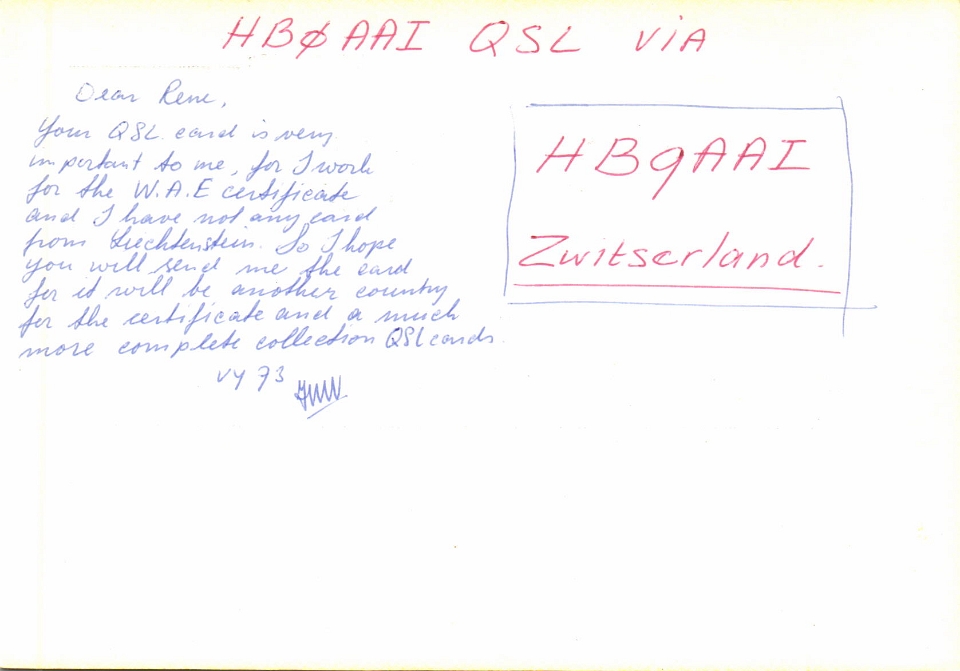 HBØAAI QSL ViA
Dear Rene,
Your QSL card is very
important to me, for I work
for the W.A.E certificate
and I have not any card
from Liechtenstein. So I hope
you will send me the card
for it will be another country
for the certificate and a much
more complete collection QSL cards.
vy 73
HB9AAI
Zwitserland.